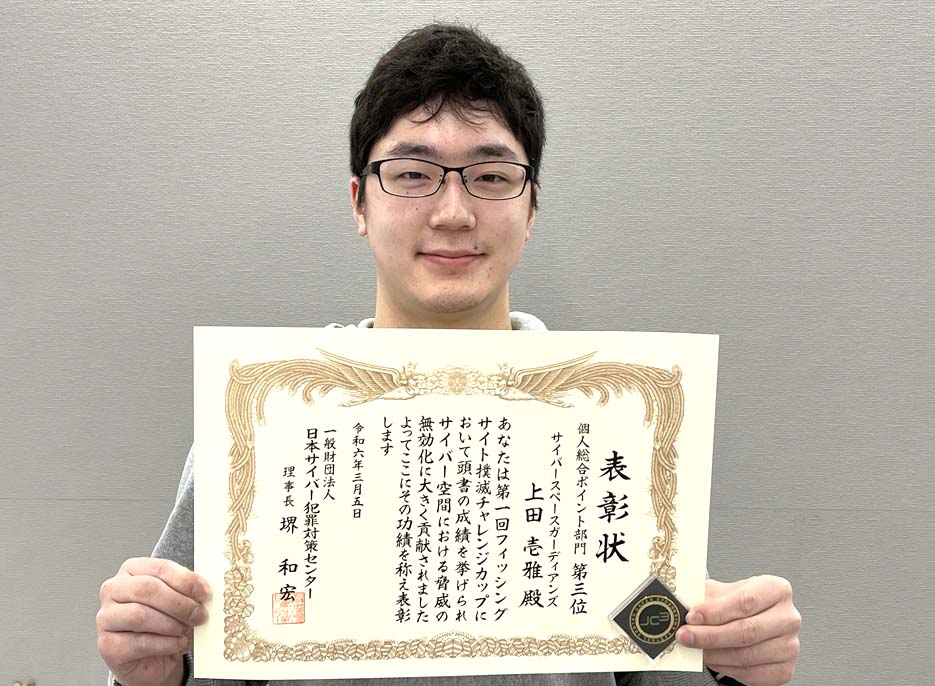 表彰状
個人総合ポイント部門 第三位
サイバースペースガーディアンズ
上田 壱雅 殿
あなたは第一回フィッシング
サイト撲滅チャレンジカップに
おいて頭書の成績を挙げられ
サイバー空間における脅威の
無効化に大きく貢献されました
よってここにその功績を称え表彰
します
令和六年三月五日
一般財団法人
日本サイバー犯罪対策センター
理事長 堺 和宏
JC3